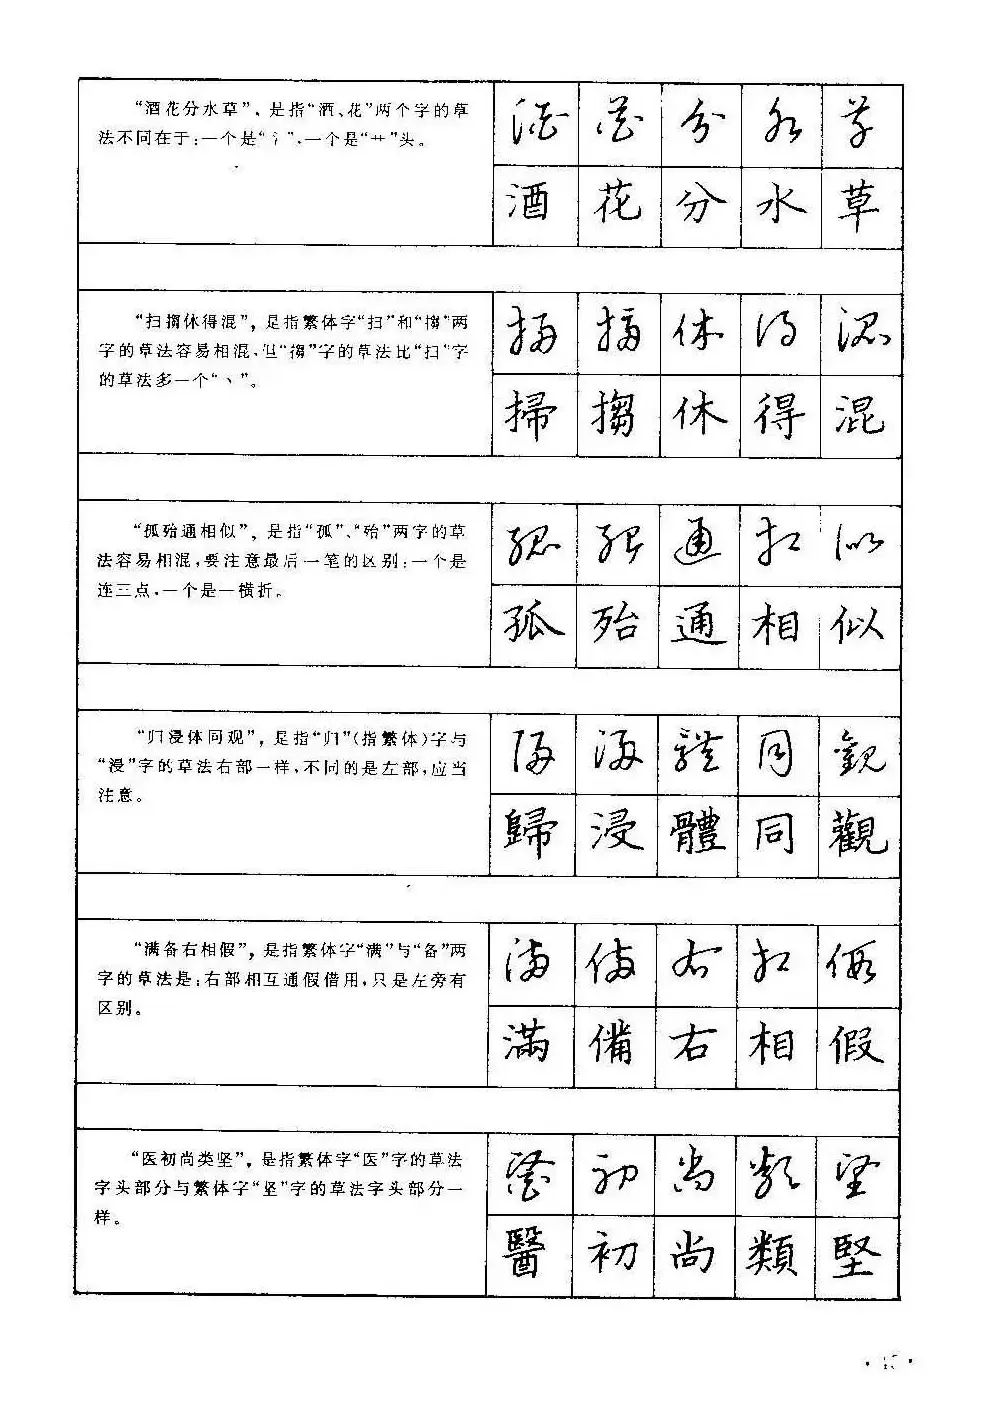 “酒花分水草”，是指“酒、花”两个字的草
法不同在于：一个是“氵”，一个是“艹”头。
酒花分水草
酒花分水草
“扫搊休得混”，是指繁体字“扫”和“搊”两
字的草法容易相混，但“搊”字的草法比“扫”字
的草法多一个“丶”。
掃搊休得混
掃搊休得混
“孤殆通相似”，是指“孤”、“殆”两字的草
法容易相混，要注意最后一笔的区别：一个是
连三点，一个是一横折。
孤殆通相似
孤殆通相似
“归浸体同观”，是指“归”（指繁体）字与
“浸”字的草法右部一样，不同的是左部，应当
注意。
歸浸體同觀
歸浸體同觀
“满备右相假”，是指繁体字“满”与“备”两
字的草法是：右部相互通假借用，只是左旁有
区别。
滿備右相假
滿備右相假
“医初尚类坚”，是指繁体字“医”字的草法
字头部分与繁体字“坚”字的草法字头部分一
样。
醫初尚類堅
醫初尚類堅